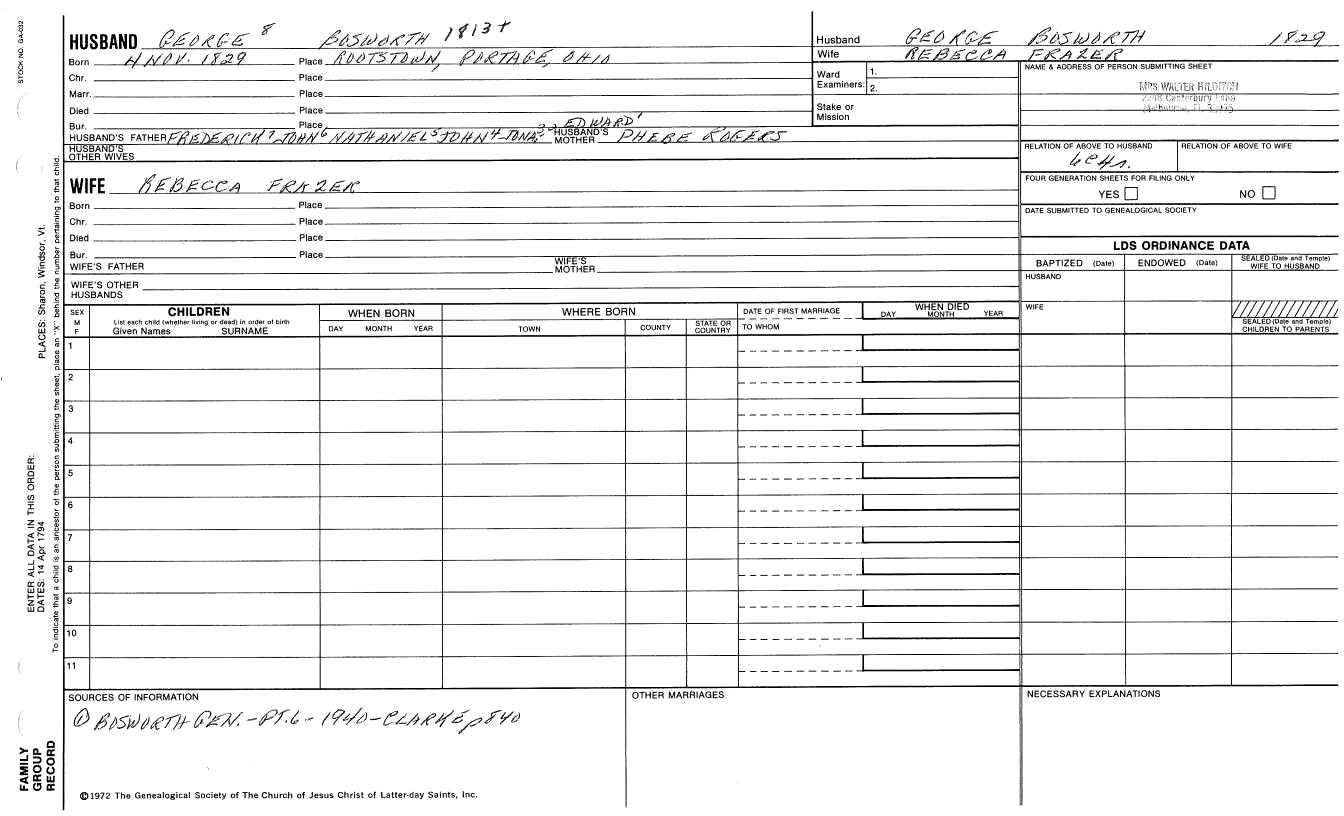 STOCK NO. GA-032
HUSBAND GEORGE 8 BOSWORTH 1813+
Born 4 NOV. 1829 Place ROOTSTOWN, PORTAGE, OHIO
Chr. Place
Marr. Place
Died Place
Bur. Place
HUSBAND'S FATHER FREDERICH 7 JOHN 6 NATHANIEL 5 JOHN 4 JONA. EDWARD 1 HUSBAND'S MOTHER PHEBE ROGERS
HUSBAND'S OTHER WIVES
WIFE REBECCA FRAZER
Born Place
Chr. Place
Died Place
Bur. Place
WIFE'S FATHER WIFE'S MOTHER
WIFE'S OTHER HUSBANDS
Husband GEORGE BOSWORTH 1829
Wife REBECCA FRAZER
Ward Examiners: 1.
2.
Stake or Mission
NAME & ADDRESS OF PERSON SUBMITTING SHEET
MRS WALTER HILDITCH
2248 Canterbury Lane
Melbourne, FL
RELATION OF ABOVE TO HUSBAND RELATION OF ABOVE TO WIFE
6C4r.
FOUR GENERATION SHEETS FOR FILING ONLY
YES NO
DATE SUBMITTED TO GENEALOGICAL SOCIETY
LDS ORDINANCE DATA
BAPTIZED (Date) ENDOWED (Date) SEALED (Date and Temple) WIFE TO HUSBAND
HUSBAND
WIFE
SEALED (Date and Temple) CHILDREN TO PARENTS
SEX M F
CHILDREN
List each child (whether living or dead) in order of birth
Given Names SURNAME
WHEN BORN
DAY MONTH YEAR
WHERE BORN
TOWN COUNTY STATE OR COUNTRY
DATE OF FIRST MARRIAGE
TO WHOM
WHEN DIED
DAY MONTH YEAR
1
2
3
4
5
6
7
8
9
10
11
SOURCES OF INFORMATION
① BOSWORTH GEN. - PT. 6 - 1940 - CLARKE p840
OTHER MARRIAGES
NECESSARY EXPLANATIONS
©1972 The Genealogical Society of The Church of Jesus Christ of Latter-day Saints, Inc.
FAMILY GROUP RECORD
ENTER ALL DATA IN THIS ORDER:
DATES: 14 Apr 1794
PLACES: Sharon, Windsor, Vt.
To indicate that a child is an ancestor of the person submitting the sheet, place an "X" behind the number pertaining to that child.